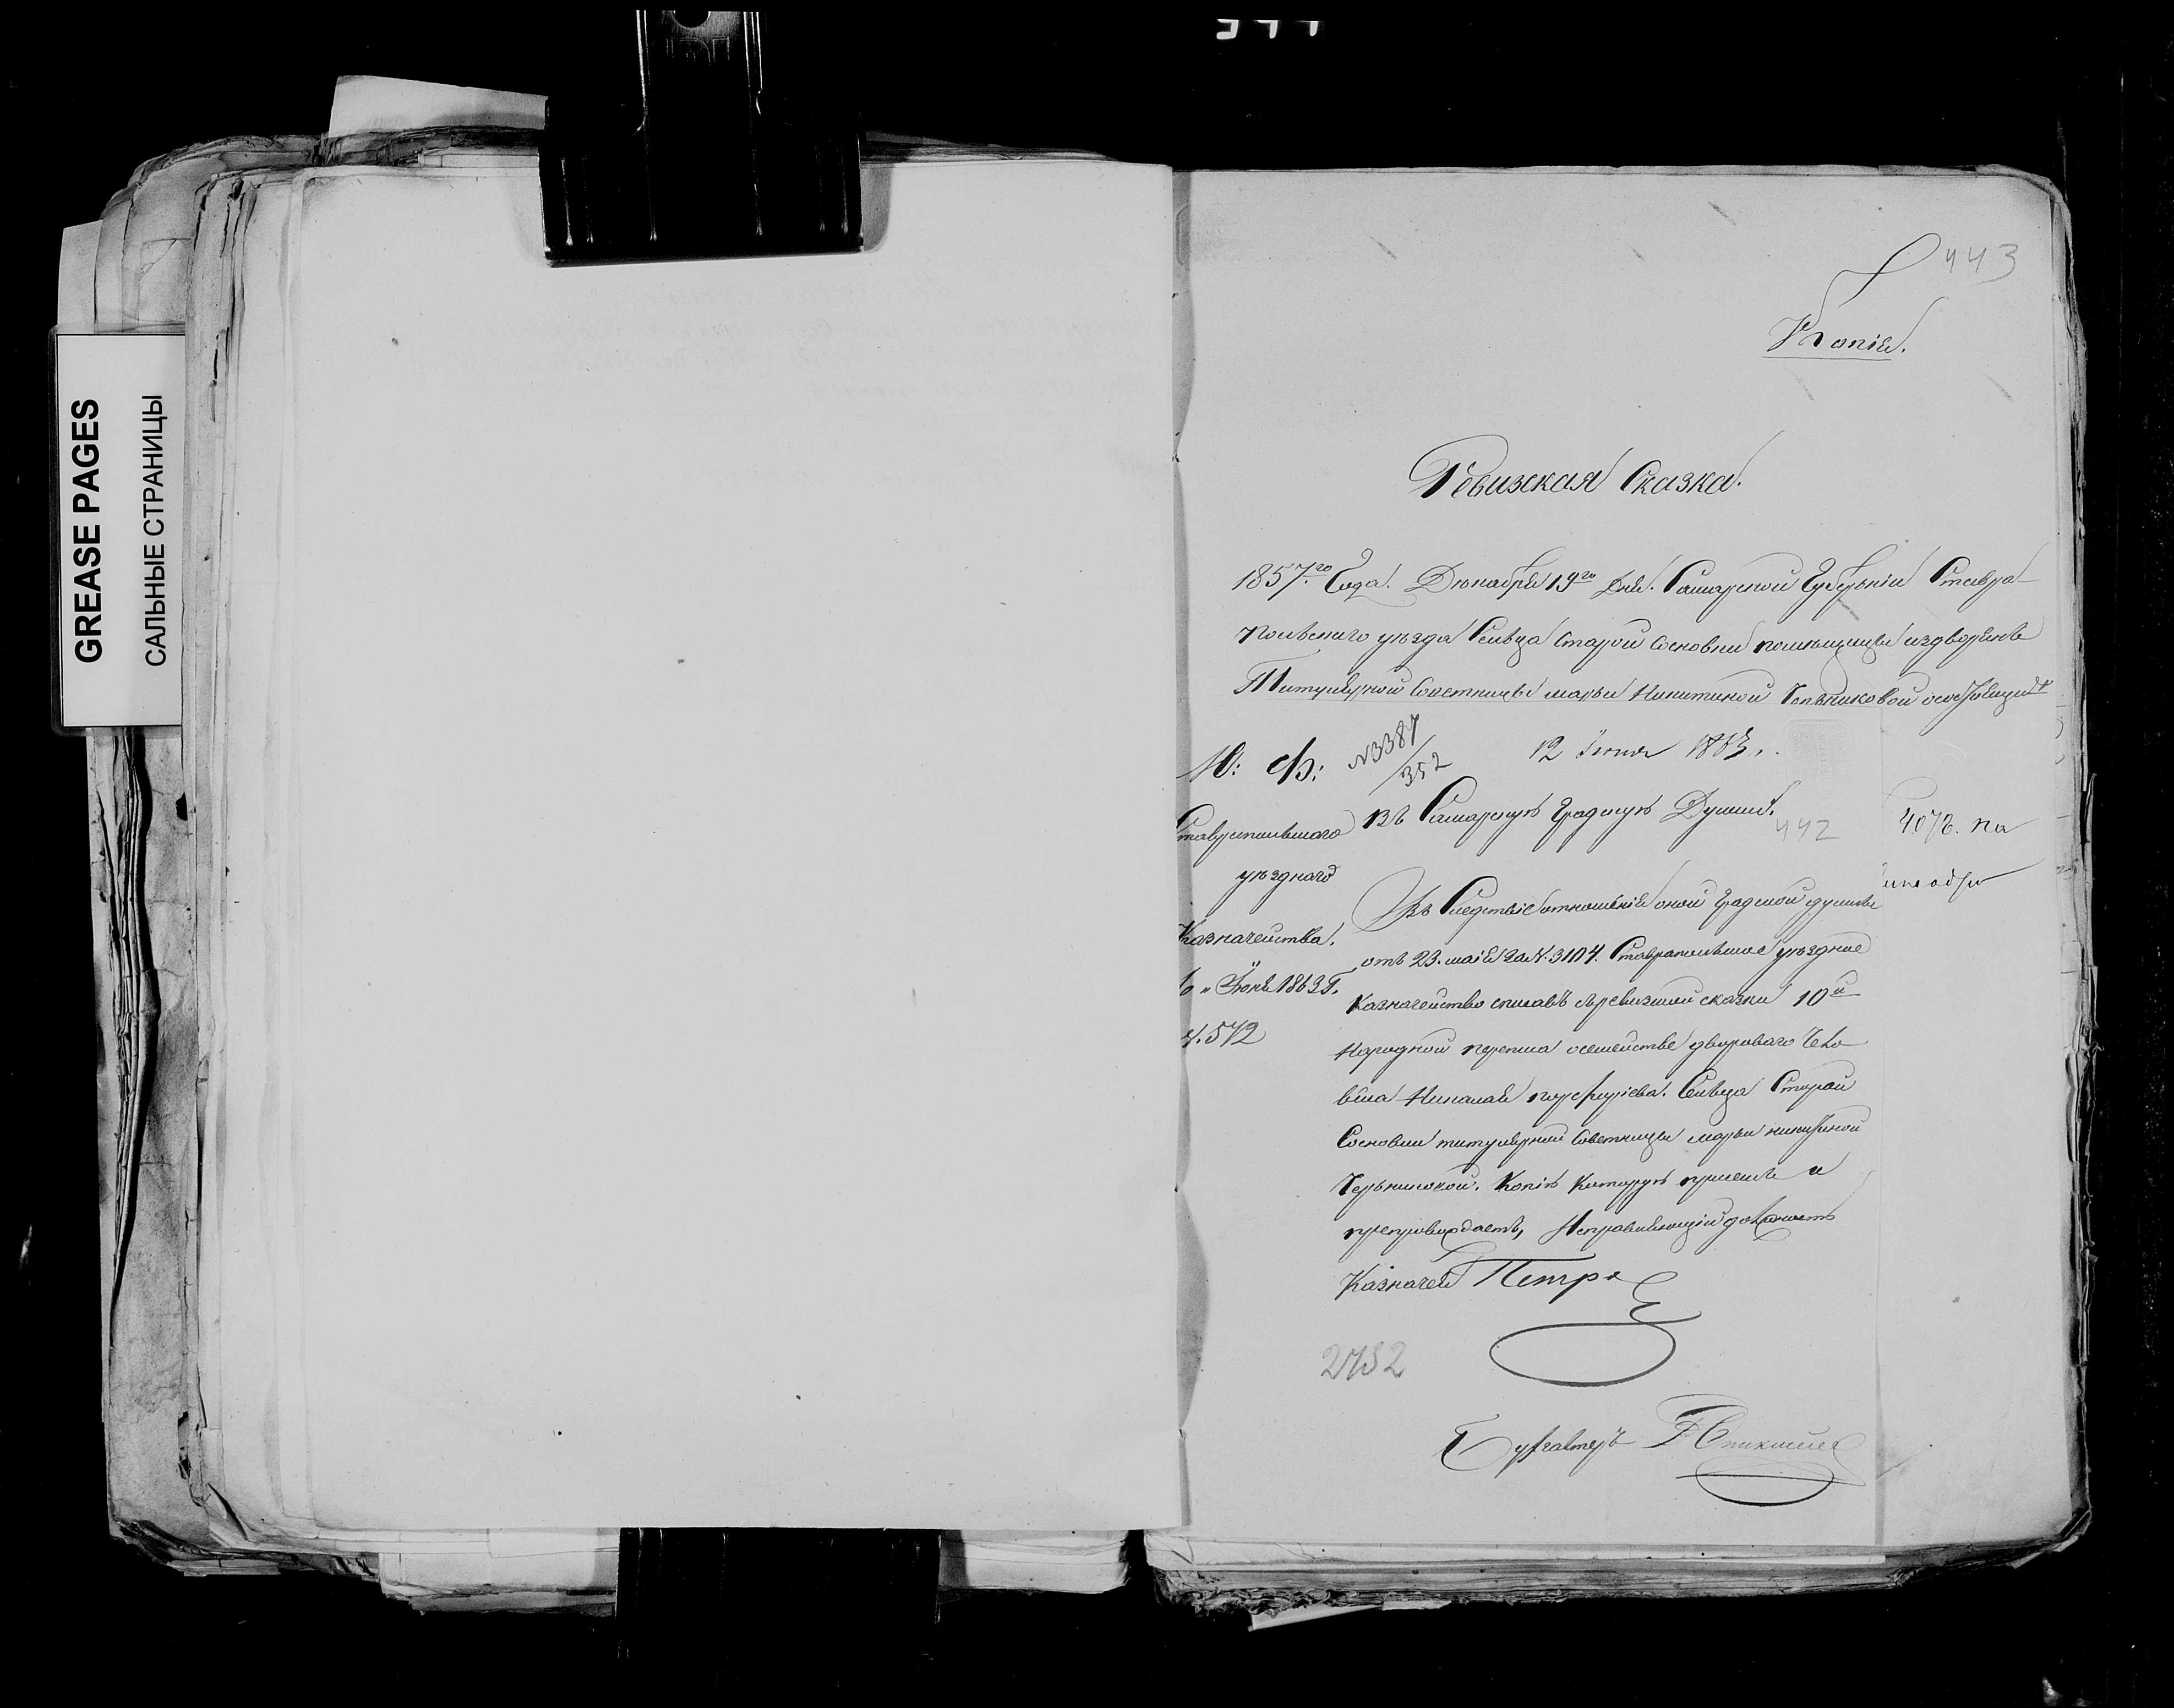 GREASE PAGES
САЛЬНЫЕ СТРАНИЦЫ
443
Копія.
Ревизская Сказка.
1857.го Года. Дюкабря 19го Дня. Самарской Губерніи Ставро-
польскаго уезда Сельца Старой Сосновки помѣщицы издворянъ
Титулярной Советницы марьи Никитиной
М: Ф:
N3387/352
12 Іюня 1863.
Ставропольскаго
уѣзднаго
Казначейства.
6 " Іюня 1863 г.
N. 572
Въ Самарскую Градскую Думу.
442
407
Въ Следствіе отношенія оной Градской думы
отъ 23. маія за N. 3104. Ставропольское уѣздное
Казначейство списавъ съ ревизской сказки 10й
Народной переписи осемействе двороваго Чело
века Николая порфирiева. Сельца Старой
Сосновки титулярной Советницы марьи никитиной
Копію Которую присемъ и
препровождаетъ, Исправляющій должность
Казначея Петро
2752
Бухгалтеръ